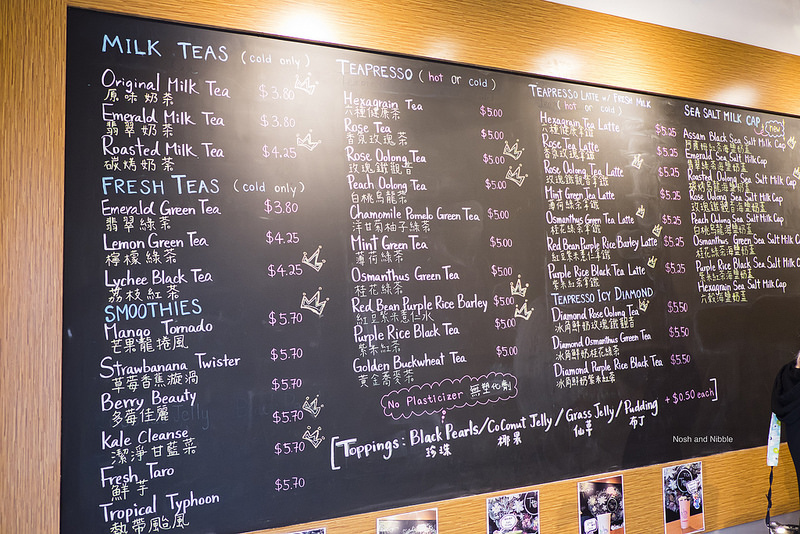 MILK TEAS (cold only)
Original Milk Tea $3.80
原味奶茶
Emerald Milk Tea $3.80
翡翠奶茶
Roasted Milk Tea $4.25
碳烤奶茶
FRESH TEAS (cold only)
Emerald Green Tea $3.80
翡翠綠茶
Lemon Green Tea $4.25
檸檬綠茶
Lychee Black Tea $4.25
荔枝紅茶
SMOOTHIES
Mango Tornado $5.70
芒果龍捲風
Strawbanana Twister $5.70
草莓香蕉漩渦
Berry Beauty $5.70
多莓佳麗
Kale Cleanse $5.70
潔淨甘藍菜
Fresh Taro $5.70
鮮芋
Tropical Typhoon $5.70
熱帶颱風
TEAPRESSO (hot or cold)
Hexagrain Tea $5.00
六種健康茶
Rose Tea $5.00
香泉玫瑰茶
Rose Oolong Tea $5.00
玫瑰鐵觀音
Peach Oolong Tea $5.00
白桃烏龍茶
Chamomile Pomelo Green Tea $5.00
洋甘菊柚子綠茶
Mint Green Tea $5.00
薄荷綠茶
Osmanthus Green Tea $5.00
桂花綠茶
Red Bean Purple Rice Barley $5.00
紅豆紫米薏仁水
Purple Rice Black Tea $5.00
紫米紅茶
Golden Buckwheat Tea $5.00
黃金蕎麥茶
No Plasticizer 無塑化劑
[Toppings: Black Pearls/Coconut Jelly/Grass Jelly/Pudding + $0.50 each]
珍珠 椰果 仙草 布丁
TEAPRESSO LATTE w/ FRESH MILK
(hot or cold)
Hexagrain Tea Latte $5.25
六種健康茶拿鐵
Rose Tea Latte $5.25
Rose Oolong Tea Latte $5.25
玫瑰鐵觀音拿鐵
Mint Green Tea Latte $5.25
薄荷綠茶拿鐵
Osmanthus Green Tea Latte $5.25
桂花綠茶拿鐵
Red Bean Purple Rice Barley Latte $5.25
紅豆紫米薏仁拿鐵
Purple Rice Black Tea Latte $5.25
紫米紅茶拿鐵
TEAPRESSO ICY DIAMOND
Diamond Rose Oolong Tea $5.50
冰角鮮奶玫瑰鐵觀音
Diamond Osmanthus Green Tea $5.50
冰角鮮奶桂花綠茶
Diamond Purple Rice Black Tea $5.50
冰角鮮奶紫米紅茶
SEA SALT MILK CAP new
Assam Black Sea Salt Milk Cap
Emerald Sea Salt Milk Cap
翡翠綠茶海鹽奶蓋
Roasted Oolong Sea Salt Milk Cap
Rose Oolong Sea Salt Milk Cap
Peach Oolong Sea Salt Milk Cap
白桃烏龍海鹽奶蓋
Osmanthus Green Sea Salt Milk C
桂花綠茶海鹽奶蓋
Purple Rice Black Sea Salt Milk C
紫米紅茶海鹽奶蓋
Hexagrain Sea Salt Milk Cap
六穀海鹽奶蓋
Nosh and Nibble